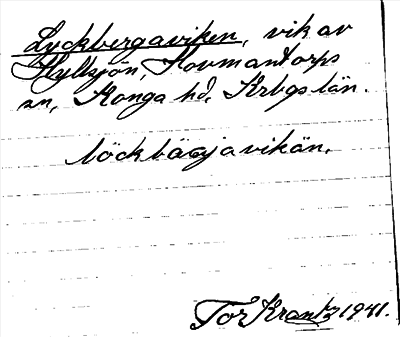 Lyckbergaviken, vik av
Hyllsjön, Hovmantorps
sn, Konga hd, Krbgs län.
löckbäɡjavikän.
Tor Krantz 1941.